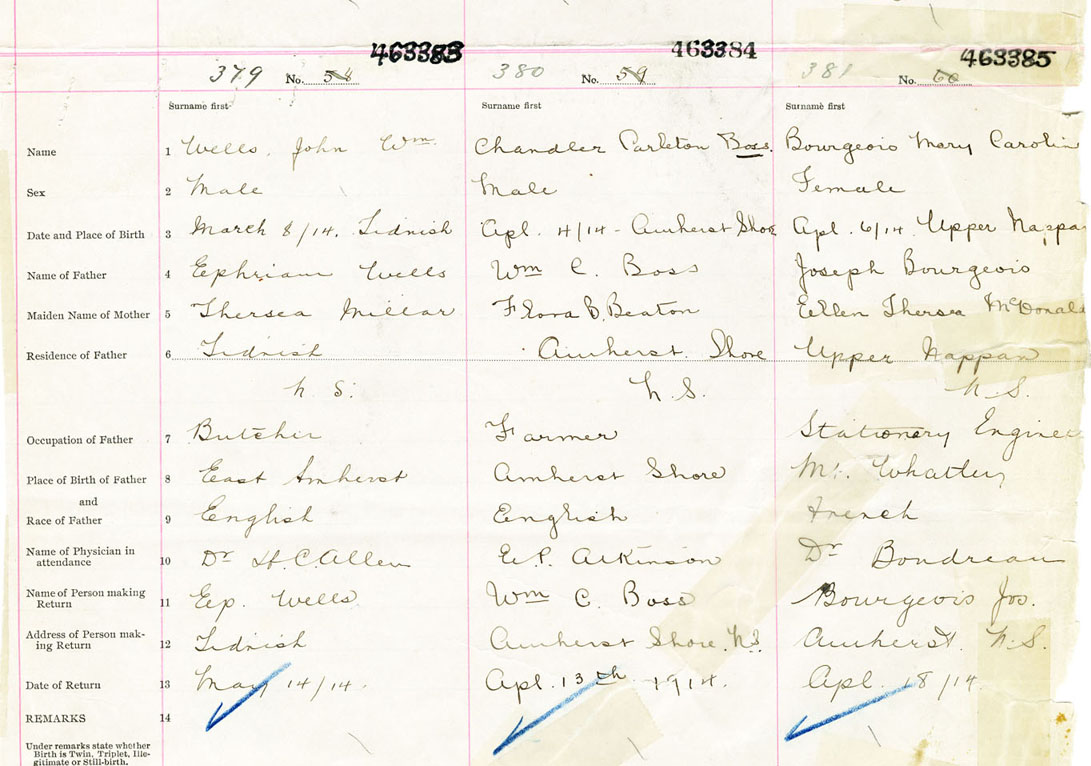 463383 463384 463385
379 No. 58 380 No. 59 381 No. 60
Surname first Surname first Surname first
Name 1 Wells, John Wm. Chandler Carleton Boss. Bourgeois Mary Carolin
Sex 2 Male Male Female
Date and Place of Birth 3 March 8/14. Tidnish Apl. 4/14 - Amherst Shore Apl. 6/14 Upper Nappa
Name of Father 4 Ephriam Wells Wm C. Boss Joseph Bourgeois
Maiden Name of Mother 5 Thersea Millar Flora B. Beaton Ellen Thersea McDonald
Residence of Father 6 Tidnish Amherst Shore Upper Nappan
N. S. N. S. N. S.
Occupation of Father 7 Butcher Farmer Stationery Engineer
Place of Birth of Father 8 East Amherst Amherst Shore Mt. Whatley
and
Race of Father 9 English English French
Name of Physician in
attendance 10 Dr H. C. Allen E. P. Atkinson Dr Boudreau
Name of Person making
Return 11 Ep. Wells Wm C. Boss Bourgeois Jos.
Address of Person mak-
ing Return 12 Tidnish Amherst Shore. N.S. Amherst. N.S.
Date of Return 13 May 14/14. Apl. 13th 1914. Apl. 18/14.
REMARKS 14
Under remarks state whether
Birth is Twin, Triplet, Ille-
gitimate or Still-birth.